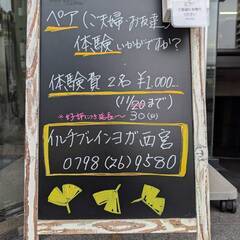 ペア(ご夫婦・お友達)
体験いかがですか?
体験費 2名 ¥1,000...
(11/20まで)
*好評につき延長〜 30(日)
イルチブレインヨガ西宮
0798(26)9580